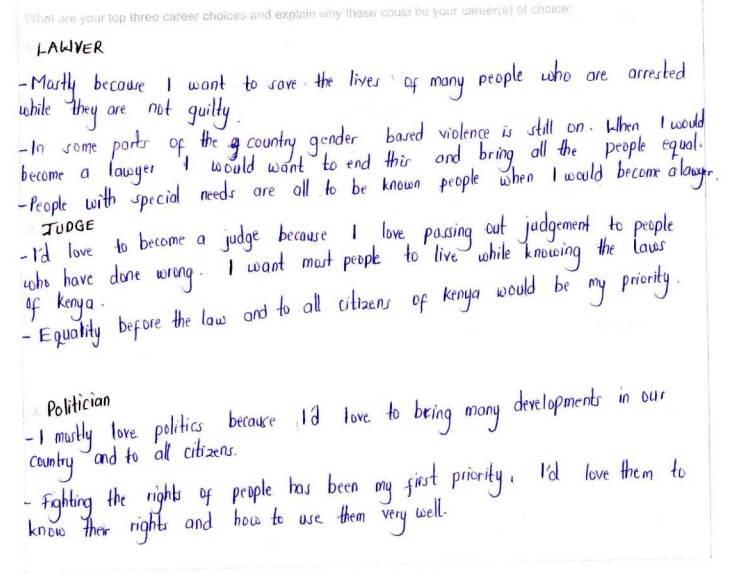 What are your top three career choices and explain why these could be your career(s) of choice?
LAWYER
- Mostly because I want to save the lives of many people who are arrested
while they are not guilty.
- In some parts of the country gender based violence is still on. When I would
become a lawyer I would want to end this and bring all the people equal.
- People with special needs are all to be known people when I would become a lawyer.
JUDGE
- I'd love to become a judge because I love passing out judgement to people
who have done wrong. I want most people to live while knowing the laws
of Kenya.
- Equality before the law and to all citizens of Kenya would be my priority.
3. Politician
- I mostly love politics because I'd love to bring many developments in our
country and to all citizens.
- Fighting the rights of people has been my first priority. I'd love them to
know their rights and how to use them very well.